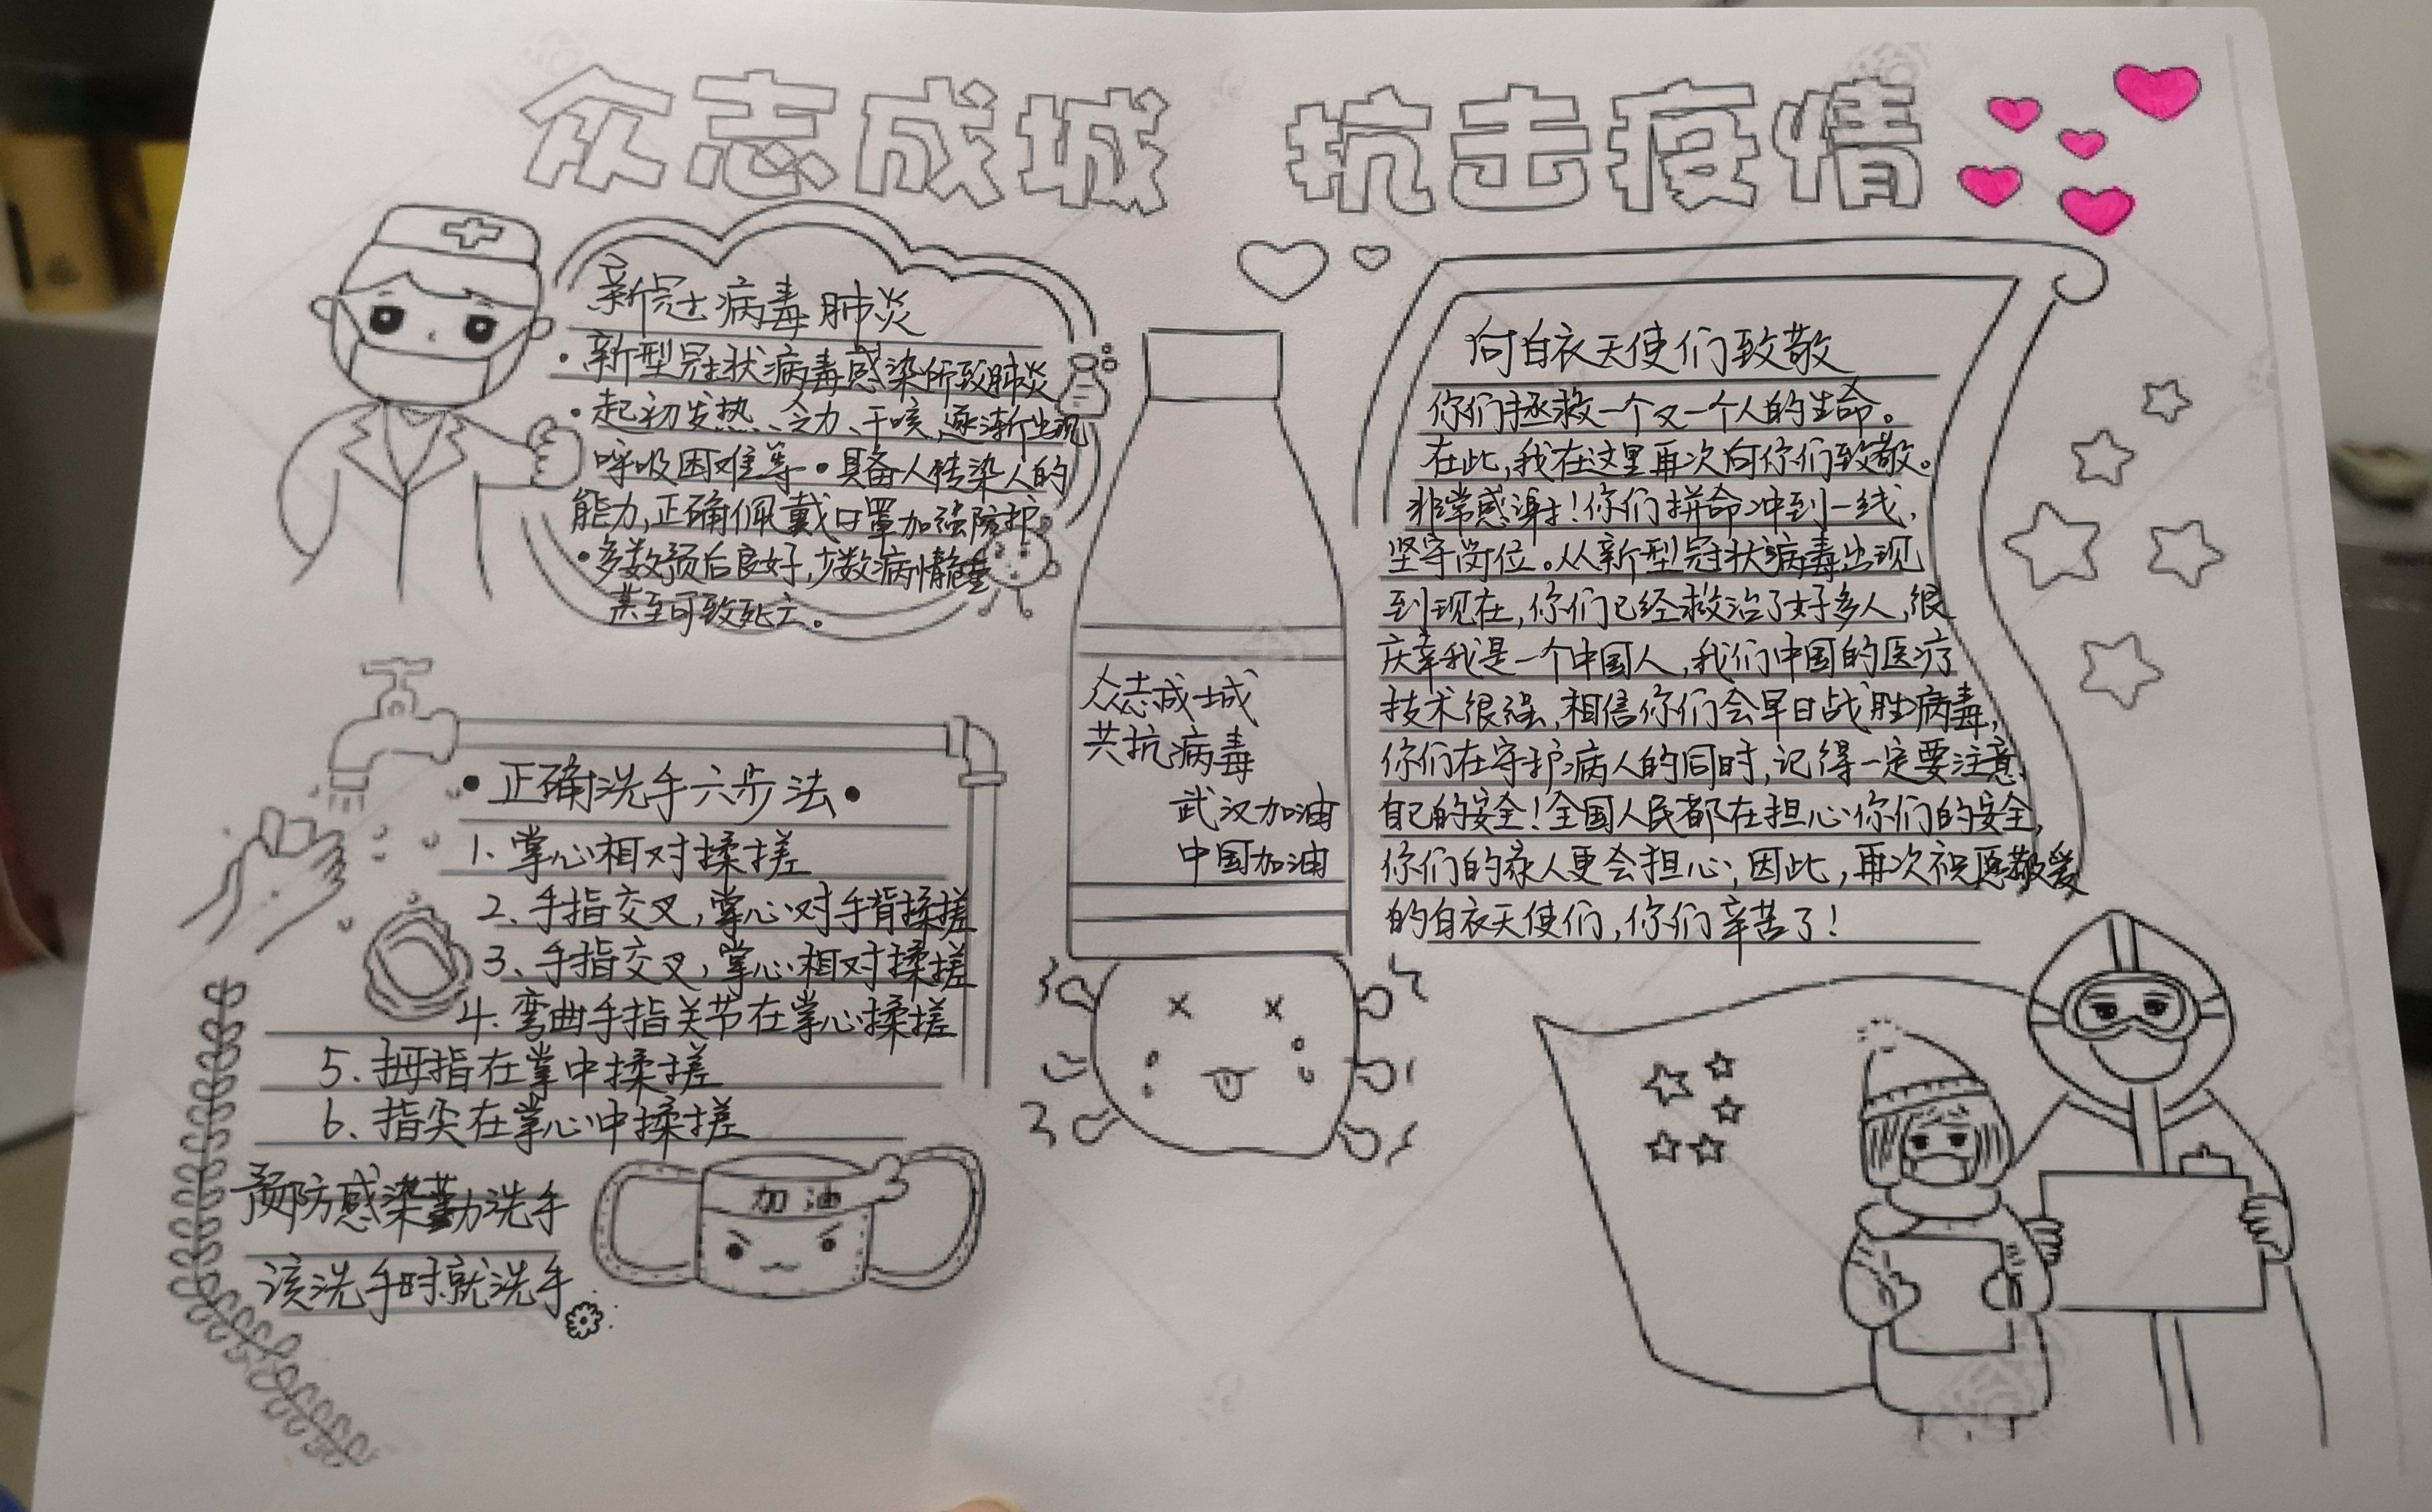 众志成城 抗击疫情
新冠病毒肺炎
·新型冠状病毒感染所致肺炎
·起初发热、乏力、干咳,逐渐出现
呼吸困难等·具备人传染人的
能力,正确佩戴口罩加强防护
·多数预后良好,少数病情危重
甚至可致死亡。
·正确洗手六步法·
1、掌心相对揉搓
2、手指交叉,掌心对手背揉搓
3、手指交叉,掌心相对揉搓
4、弯曲手指关节在掌心揉搓
5、拇指在掌中揉搓
6、指尖在掌心中揉搓
预防感染勤洗手
该洗手时就洗手
加油
众志成城
共抗病毒
武汉加油
中国加油
向白衣天使们致敬
你们拯救一个又一个人的生命。
在此,我在这里再次向你们致敬。
非常感谢!你们拼命冲到一线,
坚守岗位。从新型冠状病毒出现
到现在,你们已经救治了好多人,很
庆幸我是一个中国人,我们中国的医疗
技术很强,相信你们会早日战胜病毒,
你们在守护病人的同时,记得一定要注意
自己的安全!全国人民都在担心你们的安全,
你们的家人更会担心;因此,再次祝愿敬爱
的白衣天使们,你们辛苦了!